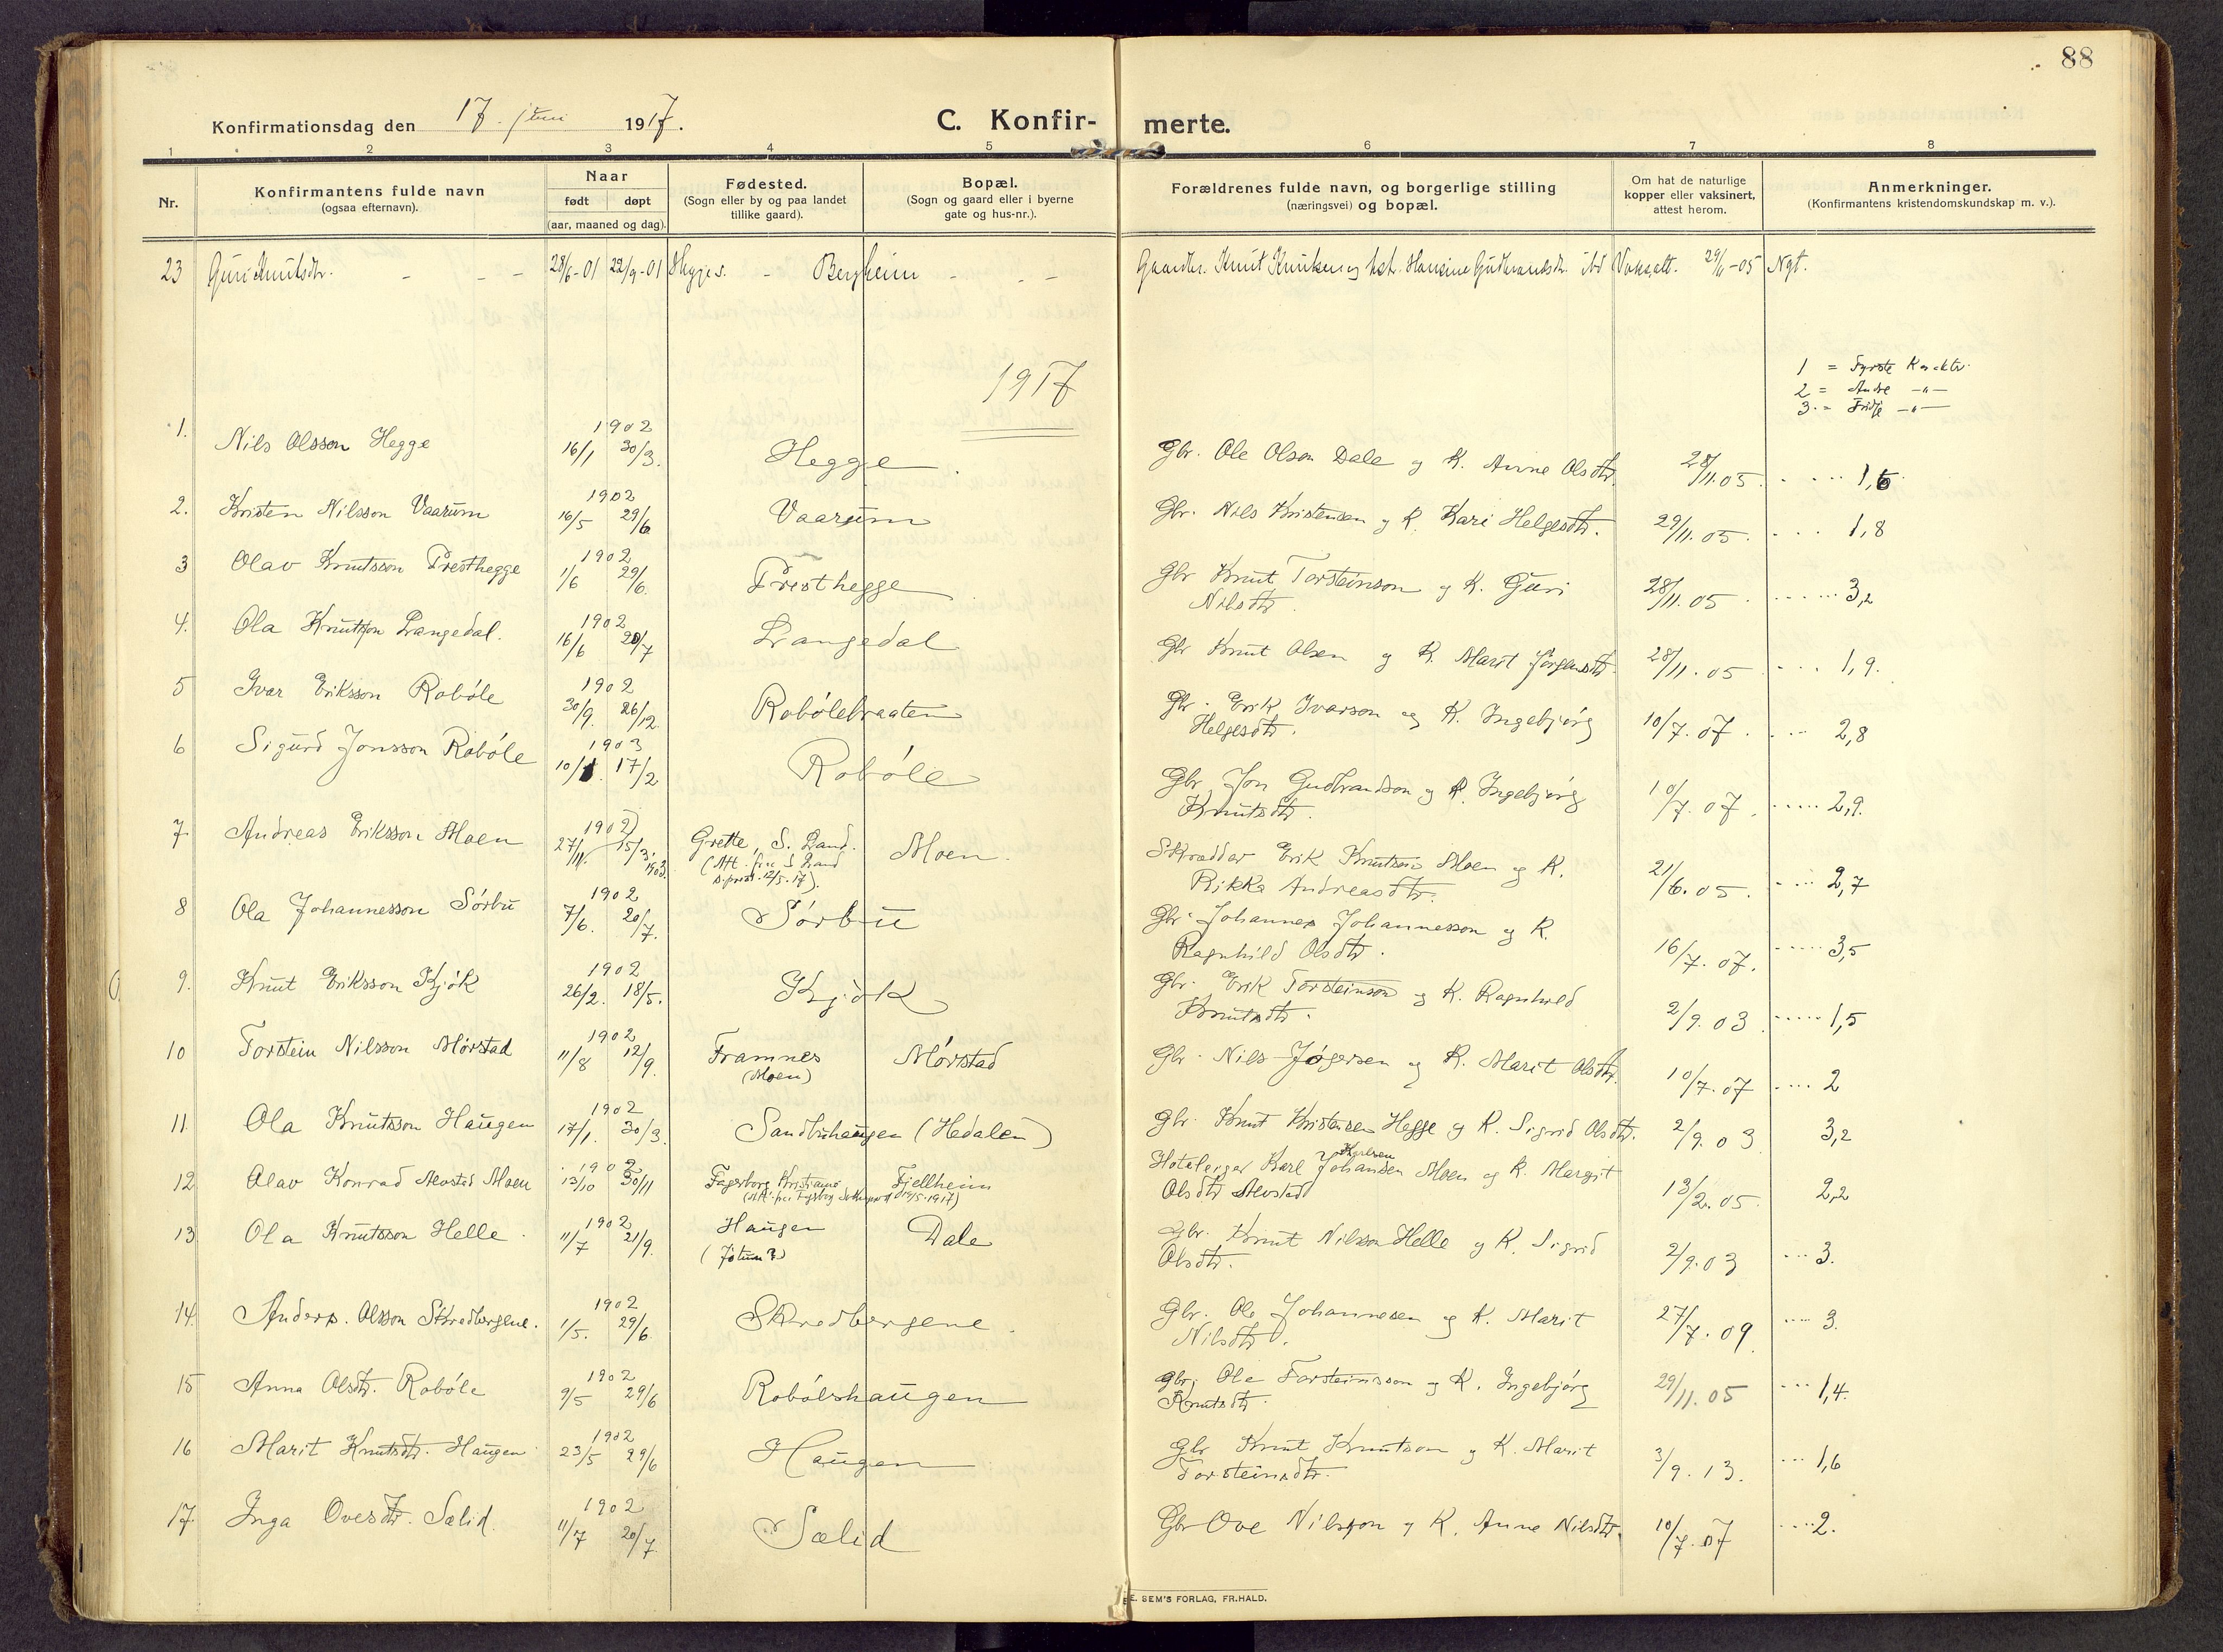 88
Konfirmationsdag den 17. juni 1917.
C. Konfir- merte.
1 2 3 4 5 6 7 8
Nr.
Konfirmantens fulde navn
(ogsaa efternavn).
Naar
født døpt
(aar, maaned og dag).
Fødested.
(Sogn eller by og paa landet
tillike gaard).
Bopæl.
(Sogn og gaard eller i byerne
gate og hus-nr.).
Forældrenes fulde navn, og borgerlige stilling
(næringsvei) og bopæl.
Om hat de naturlige
kopper eller vaksinert,
attest herom.
Anmerkninger.
(Konfirmantens kristendomskundskap m. v.).
23 Guri Knutsdtr. - - - 28/6-01 22/9-01 - Bergheim - - - Gaardbr. Knut Knutsen og hst. Hansine Gudbrandsdtr. ibd Vaksatt. 29/11-05 Ngt.
1917
1 = Fyrste Karakter
2 = Andre -"-
3. = Tridje -"-
1. Nils Olsson Hegge 1902 16/1 30/3. Hegge. Gbr. Ole Olson Dale og K. Anne Olsdtr. 28/11.05. .... 1,6
2. Kristen Nilsson Vaarum 1902 16/5 29/6 Vaarum Gbr. Nils Kristensen og K. Kari Helgesdtr. 29/11.05. ... 1,8
3 Olav Knutsson Presthegge 1902 1/6 29/6. Presthegge Gbr Knut Torsteinson og K. Guri
Nilsdtr. 28/11.05. ...... 3,2
4. Ola Knutsson Langedal. 1902 16/6 20/7 Langedal Gbr Knut Olsen og K. Marit Jørgensdtr. 28/11.05 ... 1,9.
5 Ivar Eriksson Robøle 1902 30/9. 26/12. Robølebraaten Gbr. Erik Ivarson og K. Ingebjørg
Helgesdtr. 10/7.07. ... 2,8
6 Sigurd Jonsson Robøle 1903 10/1. 17/2 Robøle Gbr. Jon Gudbrandson og K. Ingebjørg
Knutsdtr. 10/7.07. ..... 2,9.
7 Andreas Eriksson Moen 1902 27/11. 15/3. 1903. Grette, S. Land.
(Att. fra S Land
s.prest. 12/5.17). Moen. Skrædder Erik Knutson Moen og K.
Rikka Andreasdtr. 21/6.05. .... 2,7
8 Ola Johannesson Sørbu 1902 7/6. 20/7. Sørbu Gbr. Johannes Johannesson og K.
Ragnhild Olsdtr. 16/7.07. ..... 3,5
9. Knut Eriksson Kjøk 1902 26/2. 18/5. Kjøk Gbr. Erik Torsteinson og K. Ragnhild
Knutsdtr. 2/9.03 ..... 1,5
10 Torstein Nilsson Mørstad 1902 11/8 12/9. Framnes
(Moen) Mørstad Gbr. Nils Jøgersen og K. Marit Olsdtr. 10/7.07 .... 2
11. Ola Knutsson Haugen 1902 17/1. 30/3. Sandbuhaugen (Hedalen) Gbr. Knut Kristensen Hegge og K. Sigrid Olsdtr. 2/9.03 3,2
12 Olav Konrad Alvstad Moen 1902 13/10 30/11 Fagerborg Kristiania Fjellheim Hoteleigar Karl Johansen Karlsen Moen og K. Margit
Olsdtr Alvstad 13/2.05. 2,2
13 Ola Knutsson Helle. 1902 11/7 21/9. Haugen
(Jotun?) Dale Gbr. Knut Nilsson Helle og K. Sigrid
Olsdtr. 2/9.03 ... 3.
14. Anders. Olsson Skredbergene. 1902 1/5. 29/6. Skredbergene. Gbr. Ole Johannesen og K. Marit
Nilsdtr. 27/7.09. .... 3.
15 Anna Olsdtr. Robøle 1902 9/5 29/6 Robølshaugen Gbr. Ole Torsteinsson og K. Ingebjørg
Knutsdtr. 29/11.05 ... 1,4.
16 Marit Knutsdtr. Haugen 1902 23/5 29/6 Haugen Gbr Knut Knutson og K. Marit
Torsteinsdtr. 3/9.13. ... 1,6
17. Inga Ovesdtr. Sælid. 1902 11/7 20/7 Sælid Gbr Ove Nilsson og K. Anne Nilsdtr. 10/7.07 .... 2.
E. SEM'S FORLAG, FR.HALD.